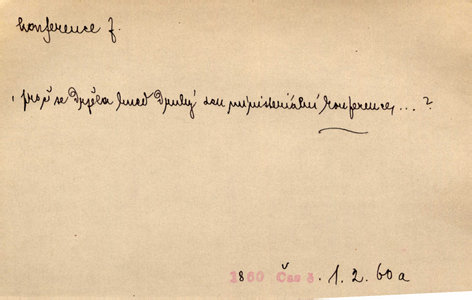 konference f.
proč se držela hned druhý den ministeriální konference, ... ?
1860 Čas č. 1. 2. 60a